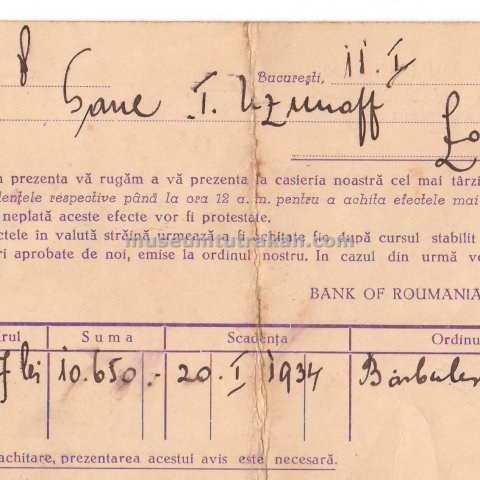 8
București, 11.I
Sane I. Uzunoff
Lo
n prezenta vă rugăm a vă prezenta la casieria noastră cel mai târzi
dențele respective până la ora 12 a. m. pentru a achita efectele mai
neplată aceste efecte vor fi protestate.
ctele în valută străină urmează a fi achitate fie după cursul stabilit
ri aprobate de noi, emise la ordinul nostru. In cazul din urmă ve
museumtutrakan.com
BANK OF ROUMANIA
rul Suma Scadența Ordinu
lei 10.650.- 20 I 1934 Bărbules
achitare, prezentarea acestui avis este necesară.